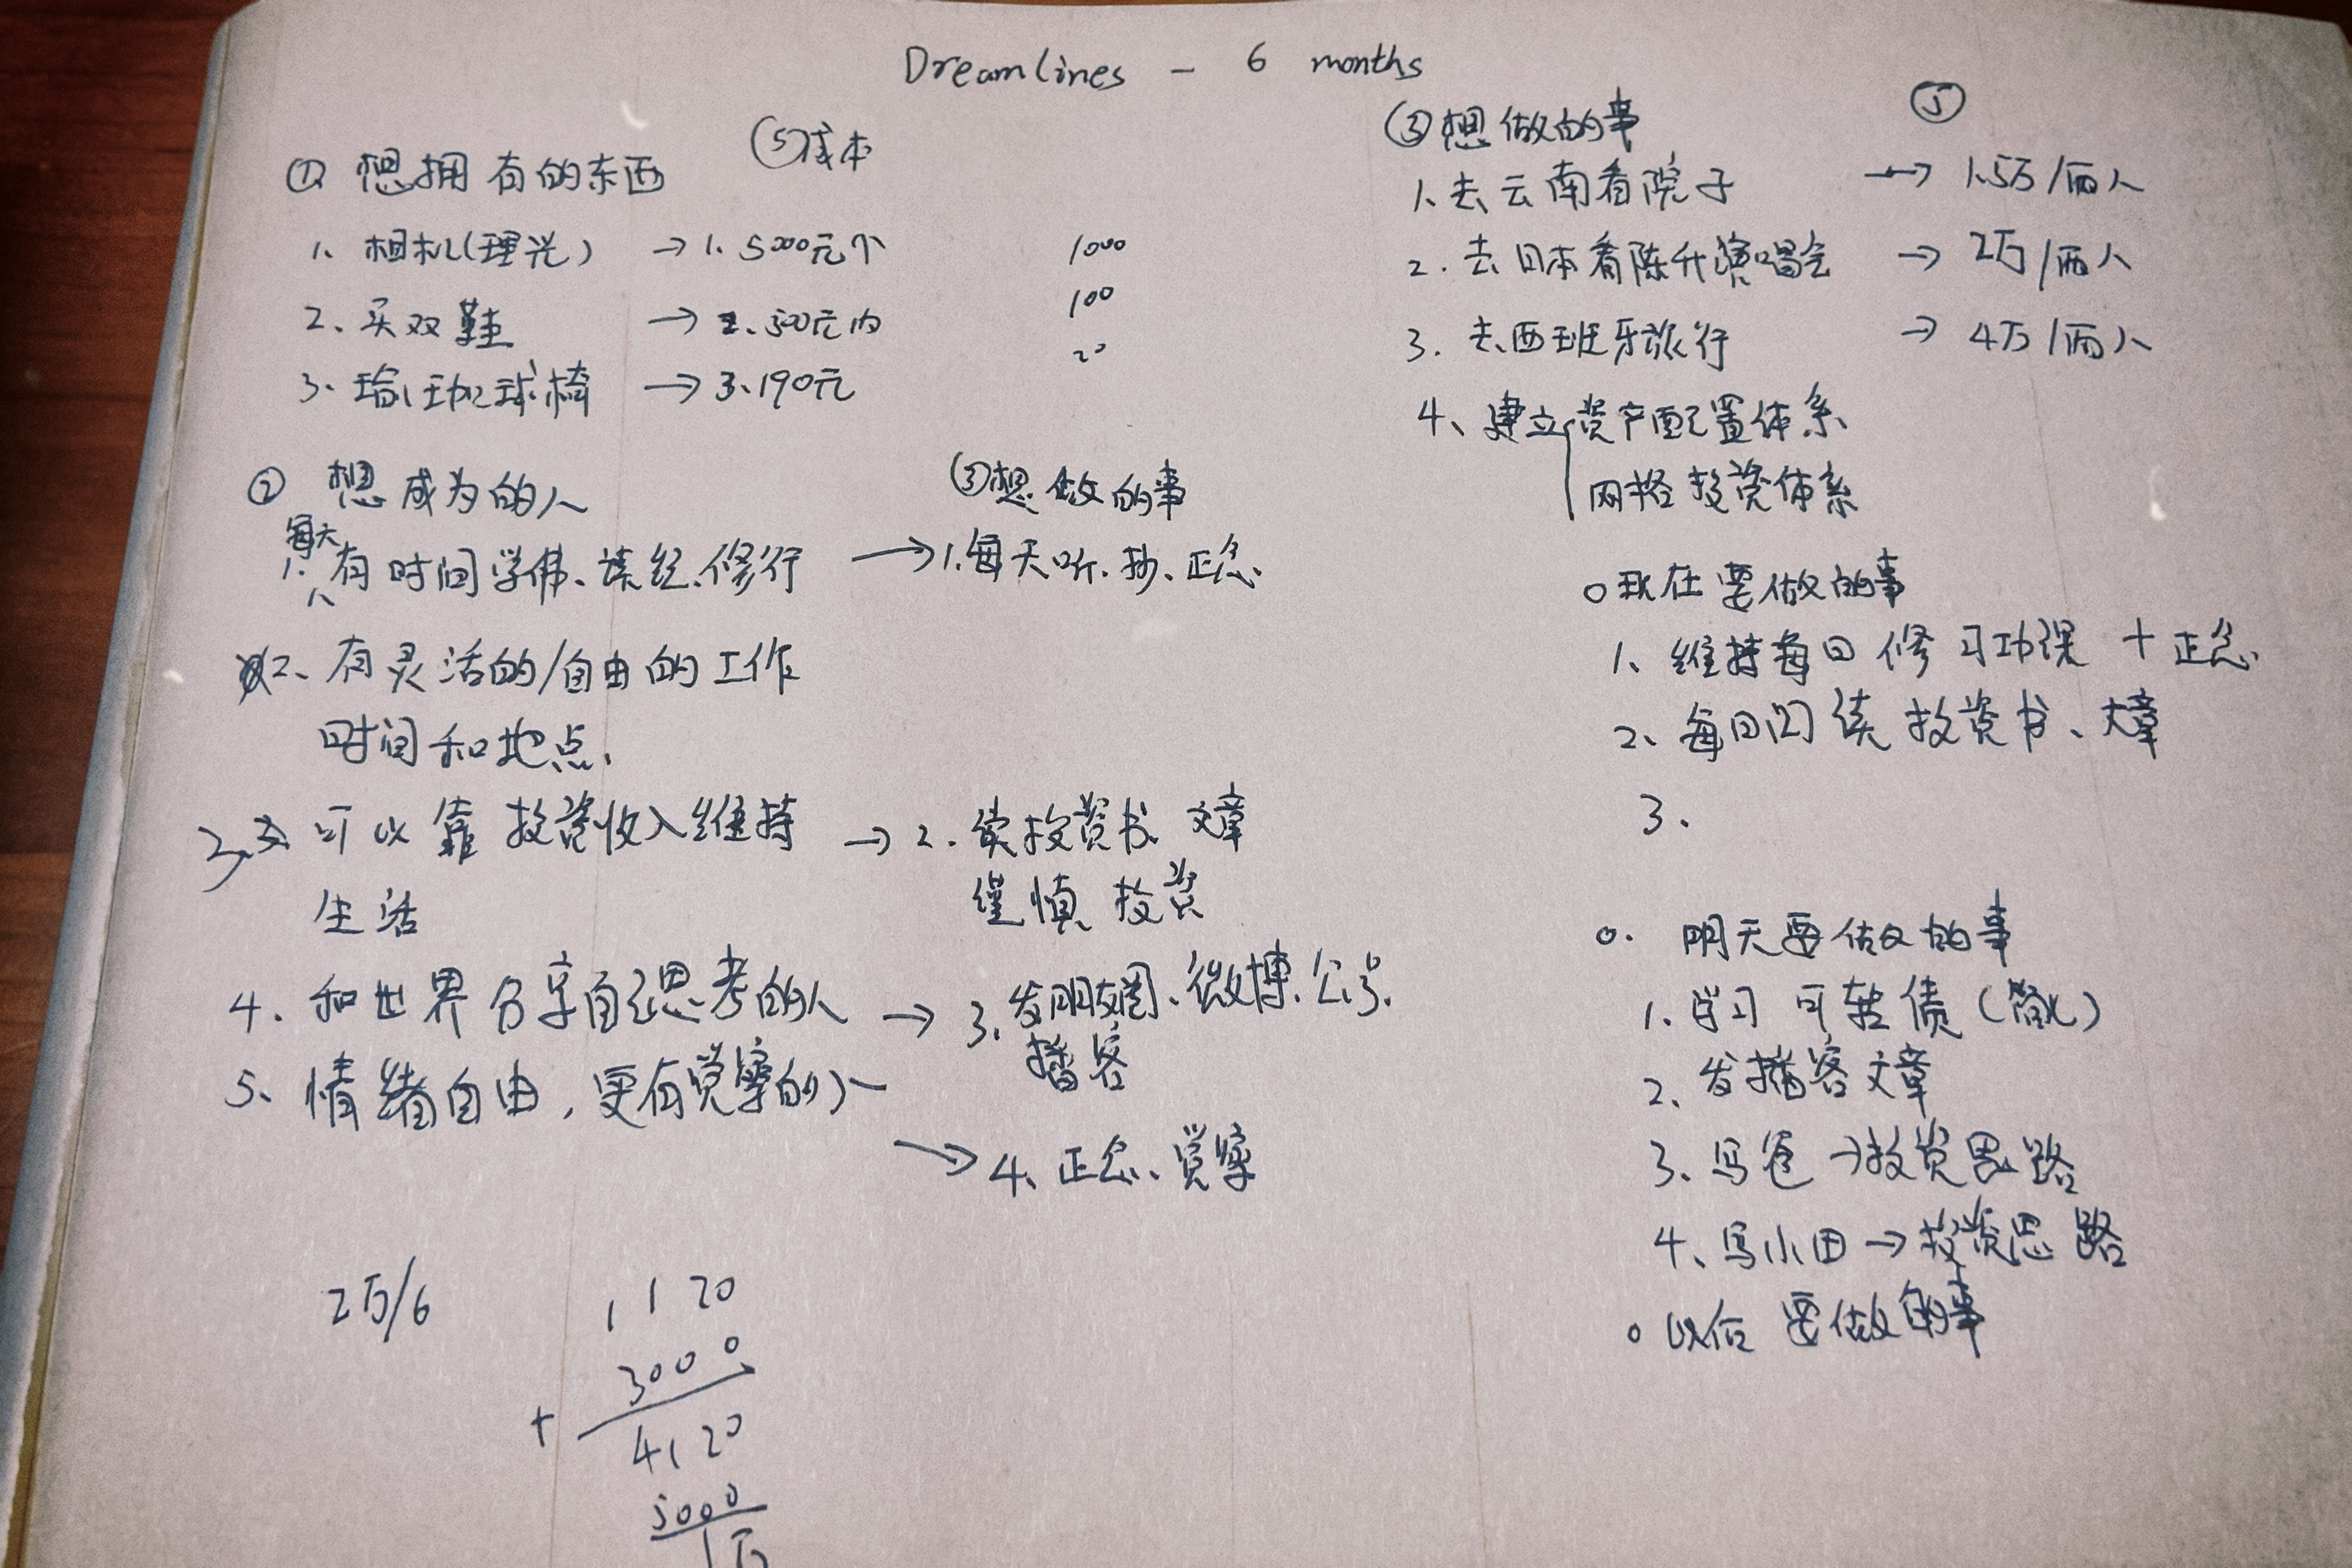 Dreamlines - 6 months
① 想拥有的东西 ⑤成本
1、相机(理光) → 1. 5000元个 1000
2、买双鞋 → 2. 500元内 100
3、瑜珈球椅 → 3、190元 20
② 想成为的人 ③想做的事
每天
1、有时间学佛、读经、修行 → 1.每天听、抄、正念
2、有灵活的/自由的工作
时间和地点、
3、可以靠投资收入维持 → 2. 读投资书、文章
生活 谨慎投资
4. 和世界分享自己思考的人 → 3、发朋友圈、微博、公号、
播客
5、情绪自由，更有觉察的人
→ 4、正念、觉察
2万/6
1120
3000
+
4120
5000
1万
③想做的事 ⑤
1、去云南看院子 → 1.5万/两人
2. 去日本看陈升演唱会 → 2万/两人
3. 去西班牙旅行 → 4万/两人
4、建立资产配置体系
网格投资体系
○现在要做的事
1、维持每日修习功课 + 正念
2、每日阅读投资书、文章
3.
○. 明天要做的事
1. 学习可转债()
2、发播客文章
3、写爸→投资思路
4、写小田→投资思路
○以后要做的事